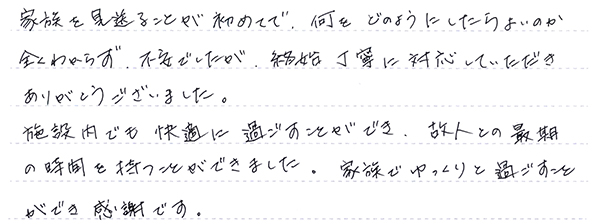 家族を見送ることが初めてで、何をどのようにしたらよいのか
全くわからず、不安でしたが、終始丁寧に対応していただき
ありがとうございました。
施設内でも快適に過ごすことができ、故人との最期
の時間を持つことができました。家族でゆっくりと過ごすこと
ができ感謝です。